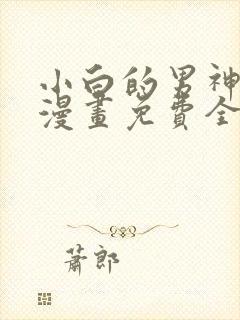 小白的男神
漫畫免費全
蕭郎